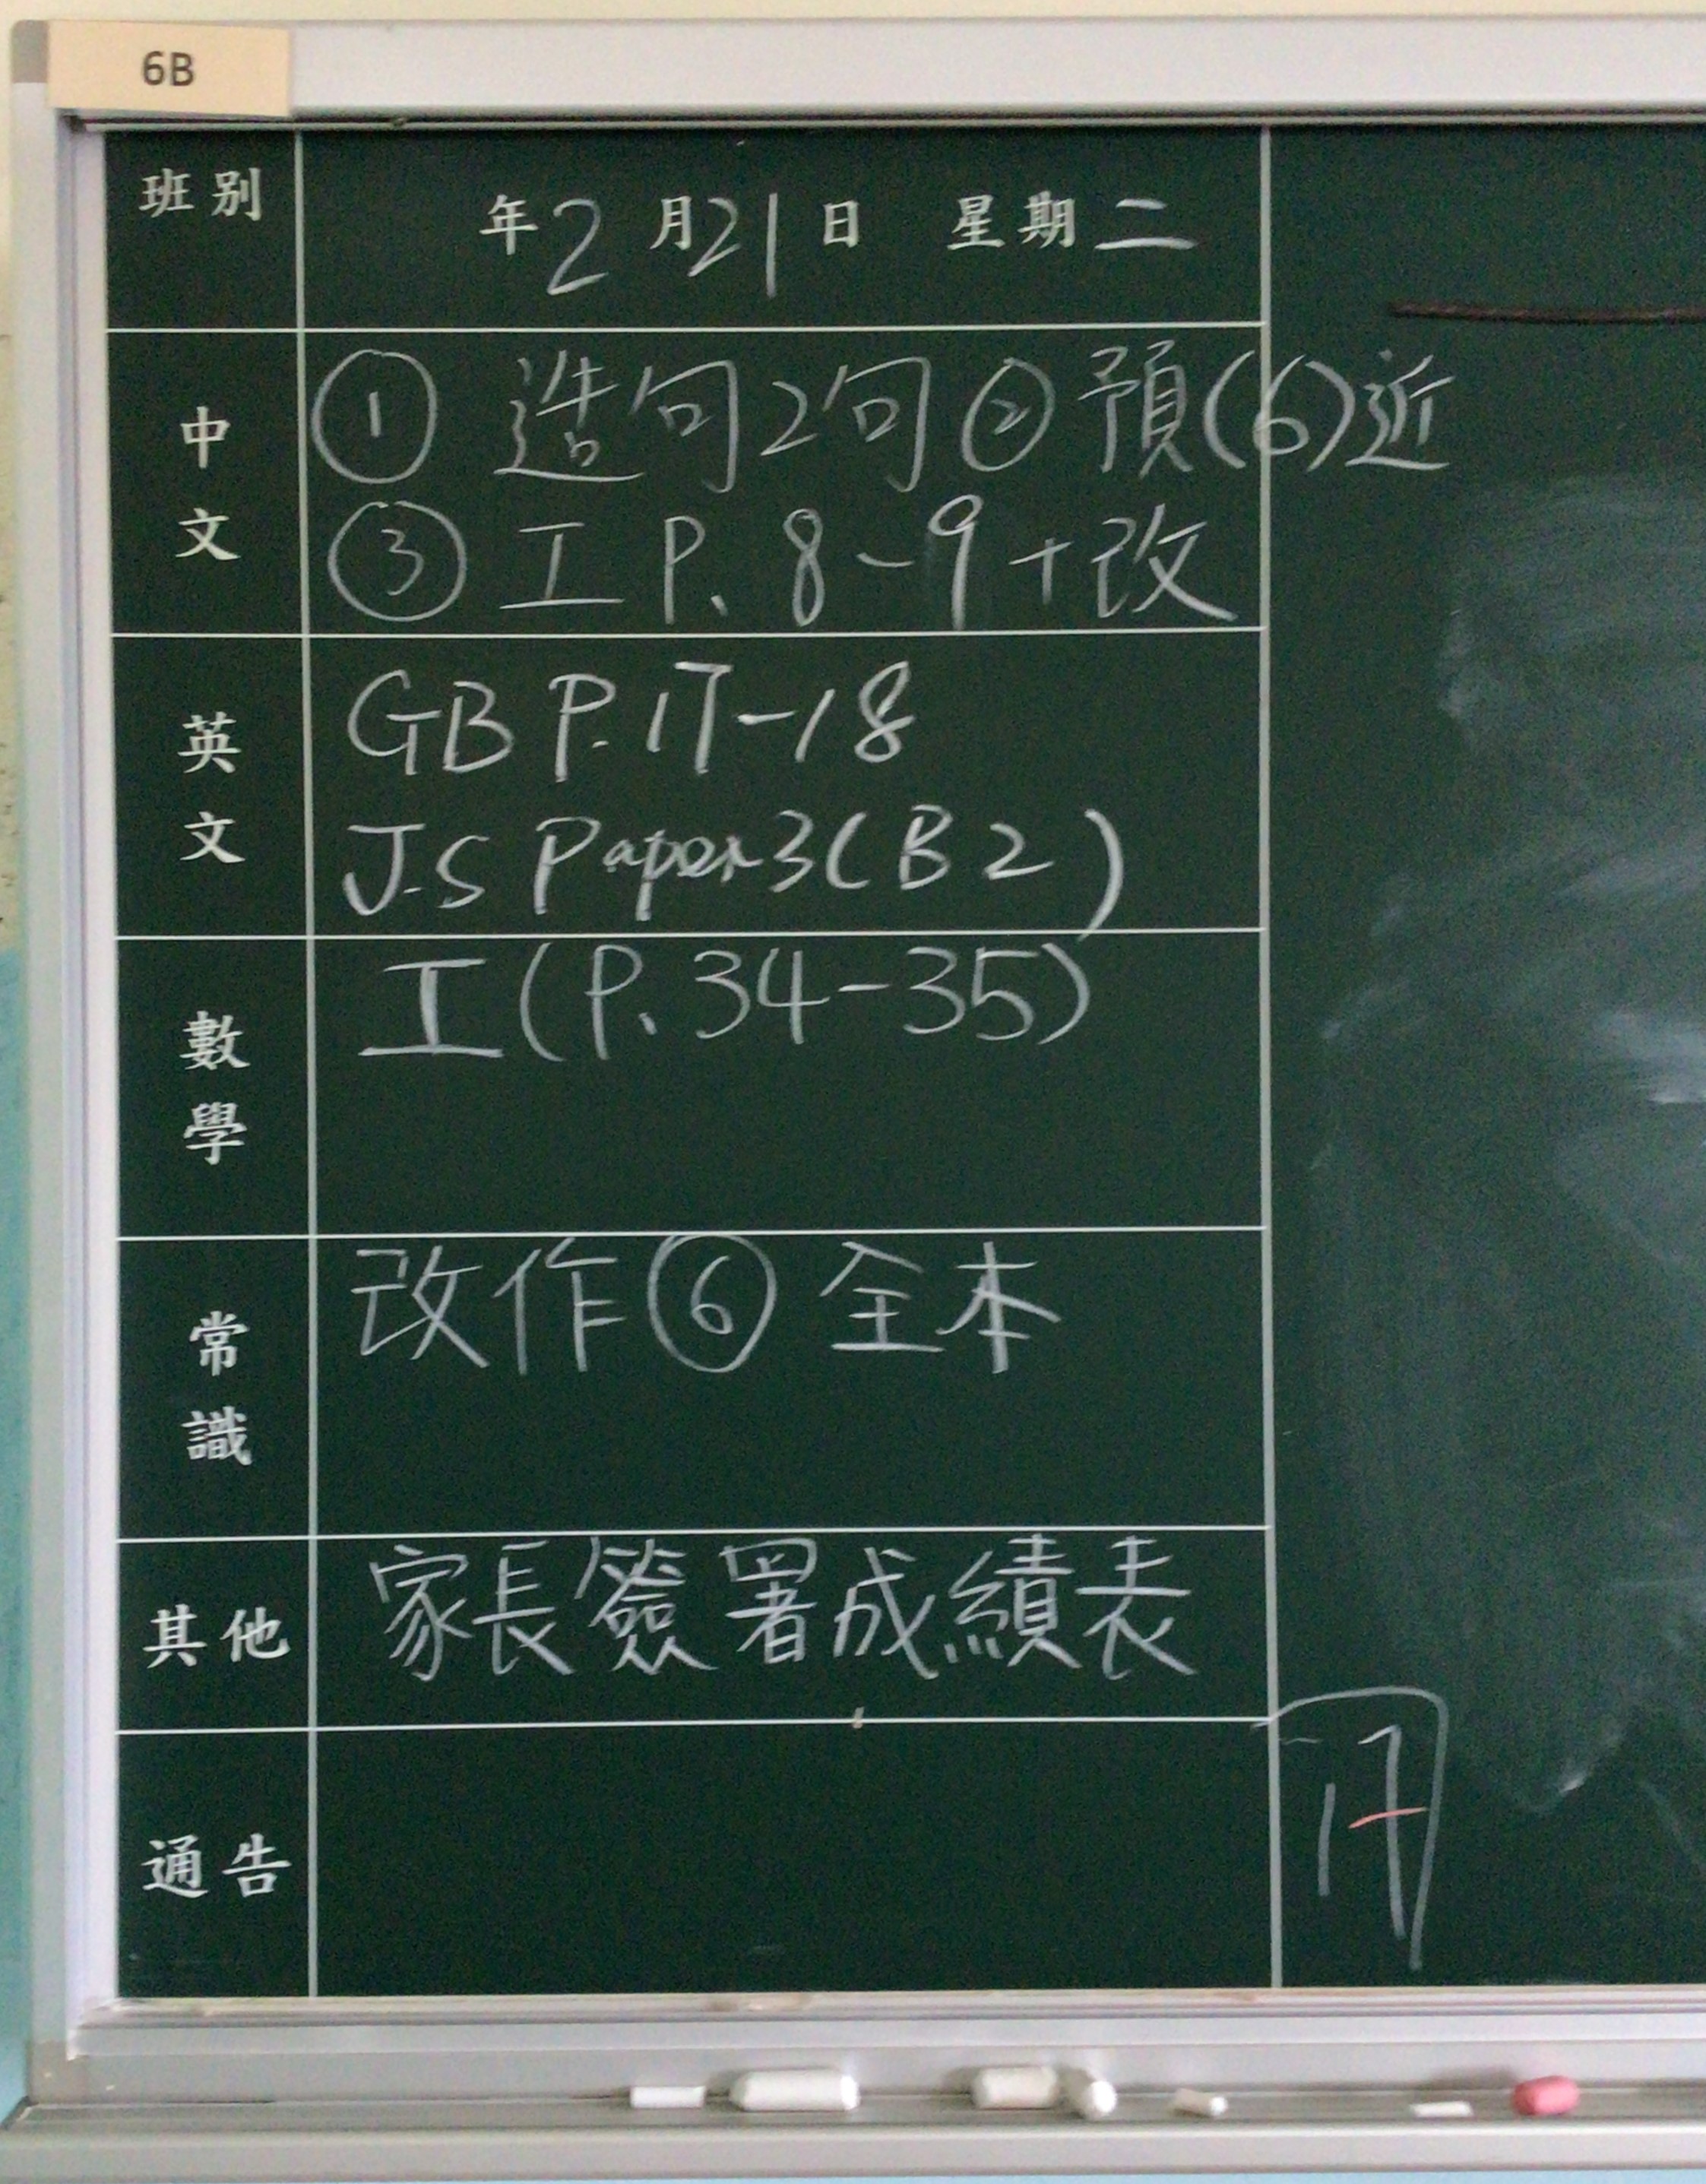 6B
班別
年2月21日 星期二
中文
① 造句2句 ② 預(6)近
③ 工 P. 8-9+改
英文
GB P.17-18
J.S Paper3(B2)
數學
工(P.34-35)
常識
改作⑥ 全本
其他
家長簽署成績表
通告
17